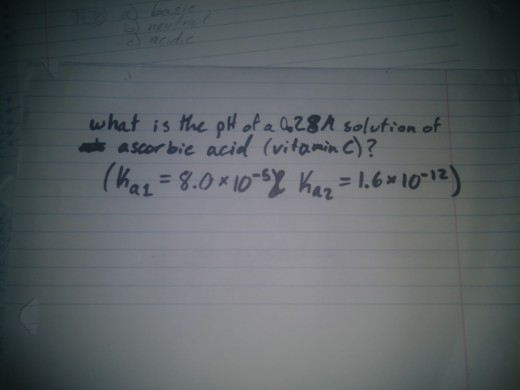 a) basic
b) neutral
c) acidic
what is the pH of a 0.28M solution of
ascorbic acid (vitamin C)?
(Ka1 = 8.0 × 10⁻⁵ & Ka2 = 1.6 × 10⁻¹²)